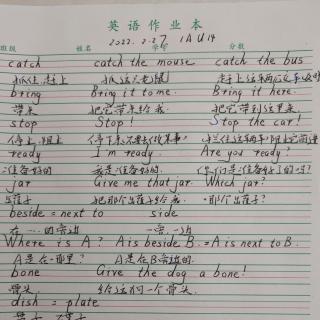 英语作业本
班级 姓名 学号 分数
2022.2.27 1AU14
catch catch the mouse catch the bus
抓住,赶上 抓这只老鼠 赶上这辆公交
bring Bring it to me. Bring it here.
带来 把它带来给我. 把它带到这里来.
stop Stop! Stop the car!
停止,阻止 停下来
ready I'm ready. Are you ready?
准备好的 我是准备好的. 你们是准备好了的吗?
jar Give me that jar. Which jar?
把那个 给我. 那个
beside = next to side
在…的旁边 一旁,一边
Where is A? A is beside B. = A is next to B.
A是在哪里? A是在B旁边的.
bone Give the dog a bone!
骨头 给这狗一个骨头.
dish = plate
盘子